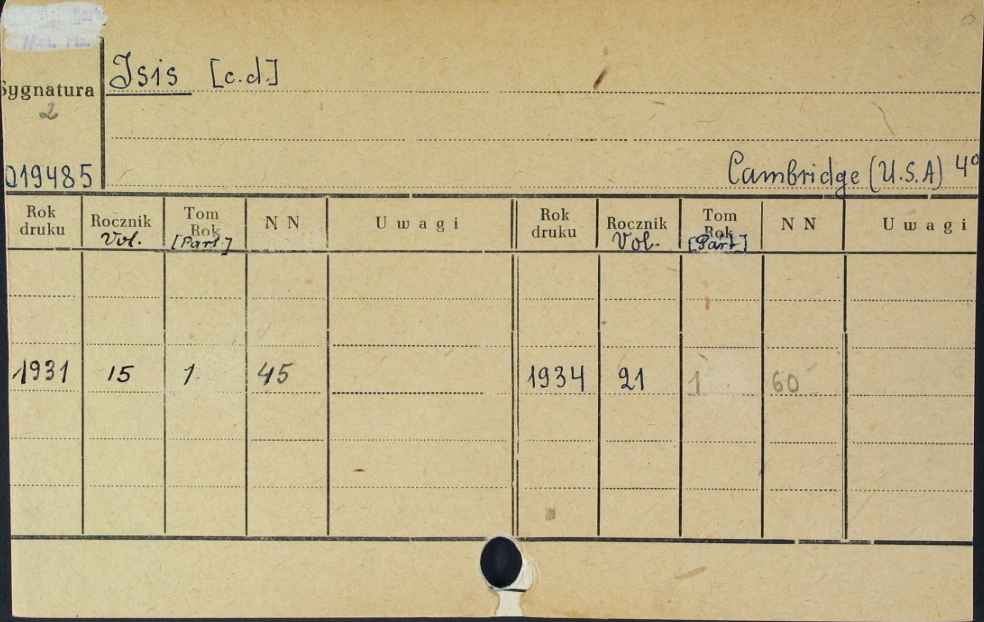 Isis [c.d.]
Sygnatura
2
019485
Cambridge (U.S.A) 4°
Rok druku Rocznik Vol. Tom Rok [Part] N N Uwagi Rok druku Rocznik Vol. Tom Rok [Part] N N Uwagi
1931 15 1 45 1934 21 1 60